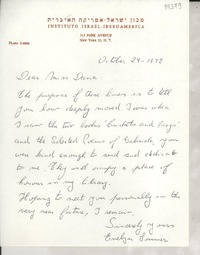 מכון ישראל-אמריקה האיברית
INSTITUTO ISRAEL-IBEROAMERICA
515 PARK AVENUE
New York 22, N. Y.
October 29-1972
Dear Miss Dana:
The purpose of these lines is to tell
you how deeply moved I was when
I saw the two books
and the Selected Poems of Gabriela, you
were kind enough to send and dedicate
to me. They will occupy a place of
honour in my library.
Hoping to meet you personally in the
very near future, I remain,
Sincerely yours
Evelyn